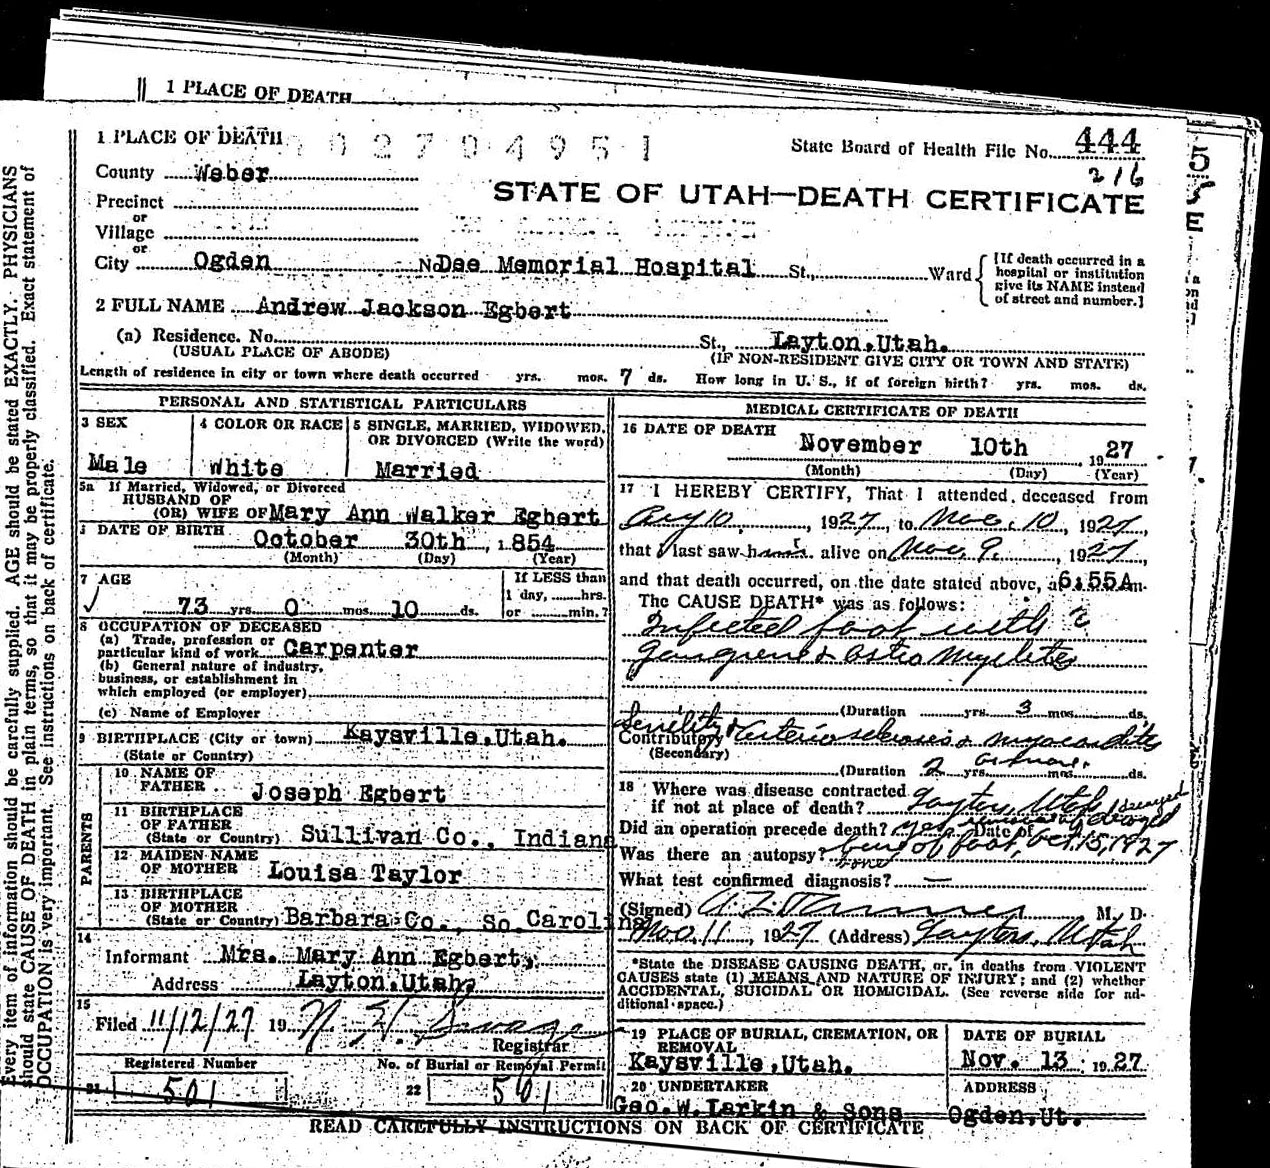 1 PLACE OF DEATH
1 PLACE OF DEATH
0 2 7 0 4 9 5 1
State Board of Health File No. 444
5
County Weber
216
STATE OF UTAH—DEATH CERTIFICATE
E
Precinct
or
Village
or
City Ogden No. Dee Memorial Hospital St., Ward
[If death occurred in a
hospital or institution
give its NAME instead
of street and number.]
2 FULL NAME Andrew Jackson Egbert
(a) Residence. No. St., Layton, Utah.
(USUAL PLACE OF ABODE) (IF NON-RESIDENT GIVE CITY OR TOWN AND STATE)
Length of residence in city or town where death occurred yrs. mos. 7 ds. How long in U. S., if of foreign birth? yrs. mos. ds.
PERSONAL AND STATISTICAL PARTICULARS
3 SEX
Male
4 COLOR OR RACE
White
5 SINGLE, MARRIED, WIDOWED,
OR DIVORCED (Write the word)
Married
5a If Married, Widowed, or Divorced
HUSBAND OF
(OR) WIFE OF Mary Ann Walker Egbert
DATE OF BIRTH October 30th, 1854
(Month) (Day) (Year)
7 AGE
73 yrs. 0 mos. 10 ds.
If LESS than
1 day, hrs.
or min.?
8 OCCUPATION OF DECEASED
(a) Trade, profession or
particular kind of work Carpenter
(b) General nature of industry,
business, or establishment in
which employed (or employer)
(c) Name of Employer
9 BIRTHPLACE (City or town) Kaysville, Utah.
(State or Country)
PARENTS
10 NAME OF
FATHER Joseph Egbert
11 BIRTHPLACE
OF FATHER
(State or Country) Sullivan Co., Indiana
12 MAIDEN NAME
OF MOTHER Louisa Taylor
13 BIRTHPLACE
OF MOTHER
(State or Country) Barbara Co., So. Carolina
14
Informant Mrs. Mary Ann Egbert,
Address Layton, Utah,
15
Filed 11/12/27 19
Registrar
Registered Number No. of Burial or Removal Permit
21 501 22 501
MEDICAL CERTIFICATE OF DEATH
16 DATE OF DEATH
November 10th, 1927
(Month) (Day) (Year)
17 I HEREBY CERTIFY, That I attended deceased from
Aug 10, 1927, to Nov. 10, 1927,
that I last saw him alive on Nov. 9, 1927,
and that death occurred, on the date stated above, at 6:55A m.
The CAUSE DEATH* was as follows:
Infected foot with
gangrene & osteo myelites
(Duration yrs. 3 mos. ds.
Senility & Arteriosclerosis & myocarditis
Contributory
(Secondary)
or more.
(Duration 2 yrs. mos. ds.
18 Where was disease contracted
if not at place of death? Layton, Utah
Did an operation precede death? yes removal of diseased Date of
bone of foot, Oct. 15, 1927
Was there an autopsy?
What test confirmed diagnosis? —
(Signed) M. D.
Nov. 11, 1927 (Address) Layton, Utah
*State the DISEASE CAUSING DEATH, or, in deaths from VIOLENT
CAUSES state (1) MEANS AND NATURE OF INJURY; and (2) whether
ACCIDENTAL, SUICIDAL OR HOMICIDAL. (See reverse side for ad-
ditional space.)
19 PLACE OF BURIAL, CREMATION, OR
REMOVAL
Kaysville, Utah.
DATE OF BURIAL
Nov. 13 1927
20 UNDERTAKER
Geo. W. Larkin & Sons
ADDRESS
Ogden, Ut.
READ CAREFULLY INSTRUCTIONS ON BACK OF CERTIFICATE
Every item of information should be carefully supplied. AGE should be stated EXACTLY. PHYSICIANS
should state CAUSE OF DEATH in plain terms, so that it may be properly classified. Exact statement of
OCCUPATION is very important. See instructions on back of certificate.